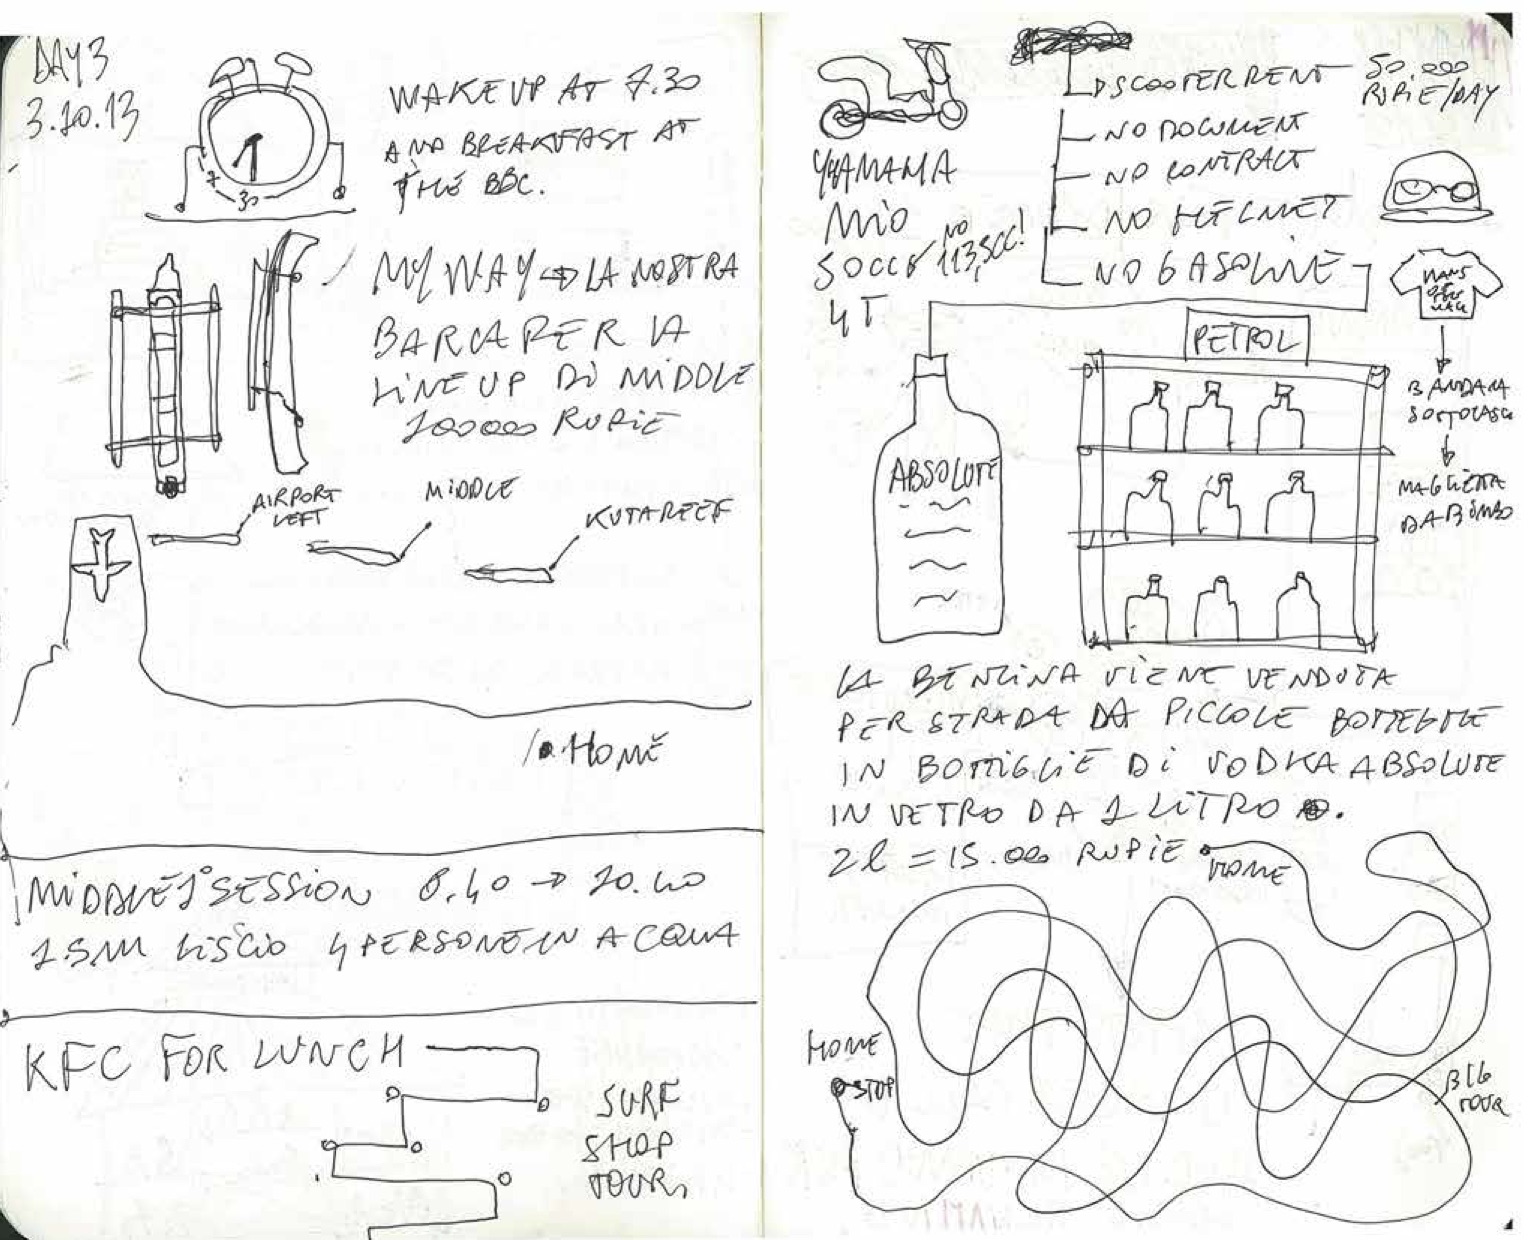 DAY 3
3.10.13
7
30
WAKE UP AT 7.30
AND BREAKFAST AT
THE BBC.
MY WAY → LA NOSTRA
BARCA PER LA
LINE UP DI MIDDLE
100000 RUPIE
AIRPORT
LEFT
MIDDLE
KUTA REEF
HOME
MIDDLE 1° SESSION 8.40 → 10.40
1.5M LISCIO 4 PERSONE IN ACQUA
KFC FOR LUNCH
SURF
SHOP
TOUR
SCOOTER RENT 50.000
RUPIE/DAY
NO DOCUMENT
NO CONTRACT
NO HELMET
NO GASOLINE
YAMAMA
MIO
50CC NO 113,5CC!
4T
BANDANA
SOTTOCASCO
MAGLIETTA
DA BIMBO
PETROL
ABSOLUTE
LA BENZINA VIENE VENDUTA
PER STRADA DA PICCOLE BOTTEGHE
IN BOTTIGLIE DI VODKA ABSOLUTE
IN VETRO DA 1 LITRO.
2l = 15.000 RUPIE
HOME
HOME
STOP
BIG
TOUR